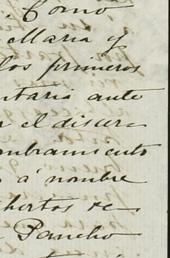 Como
Maria y
los primeros
ntario ante
r el discer
ombramiento
a' nombre
hertos de
Pancho